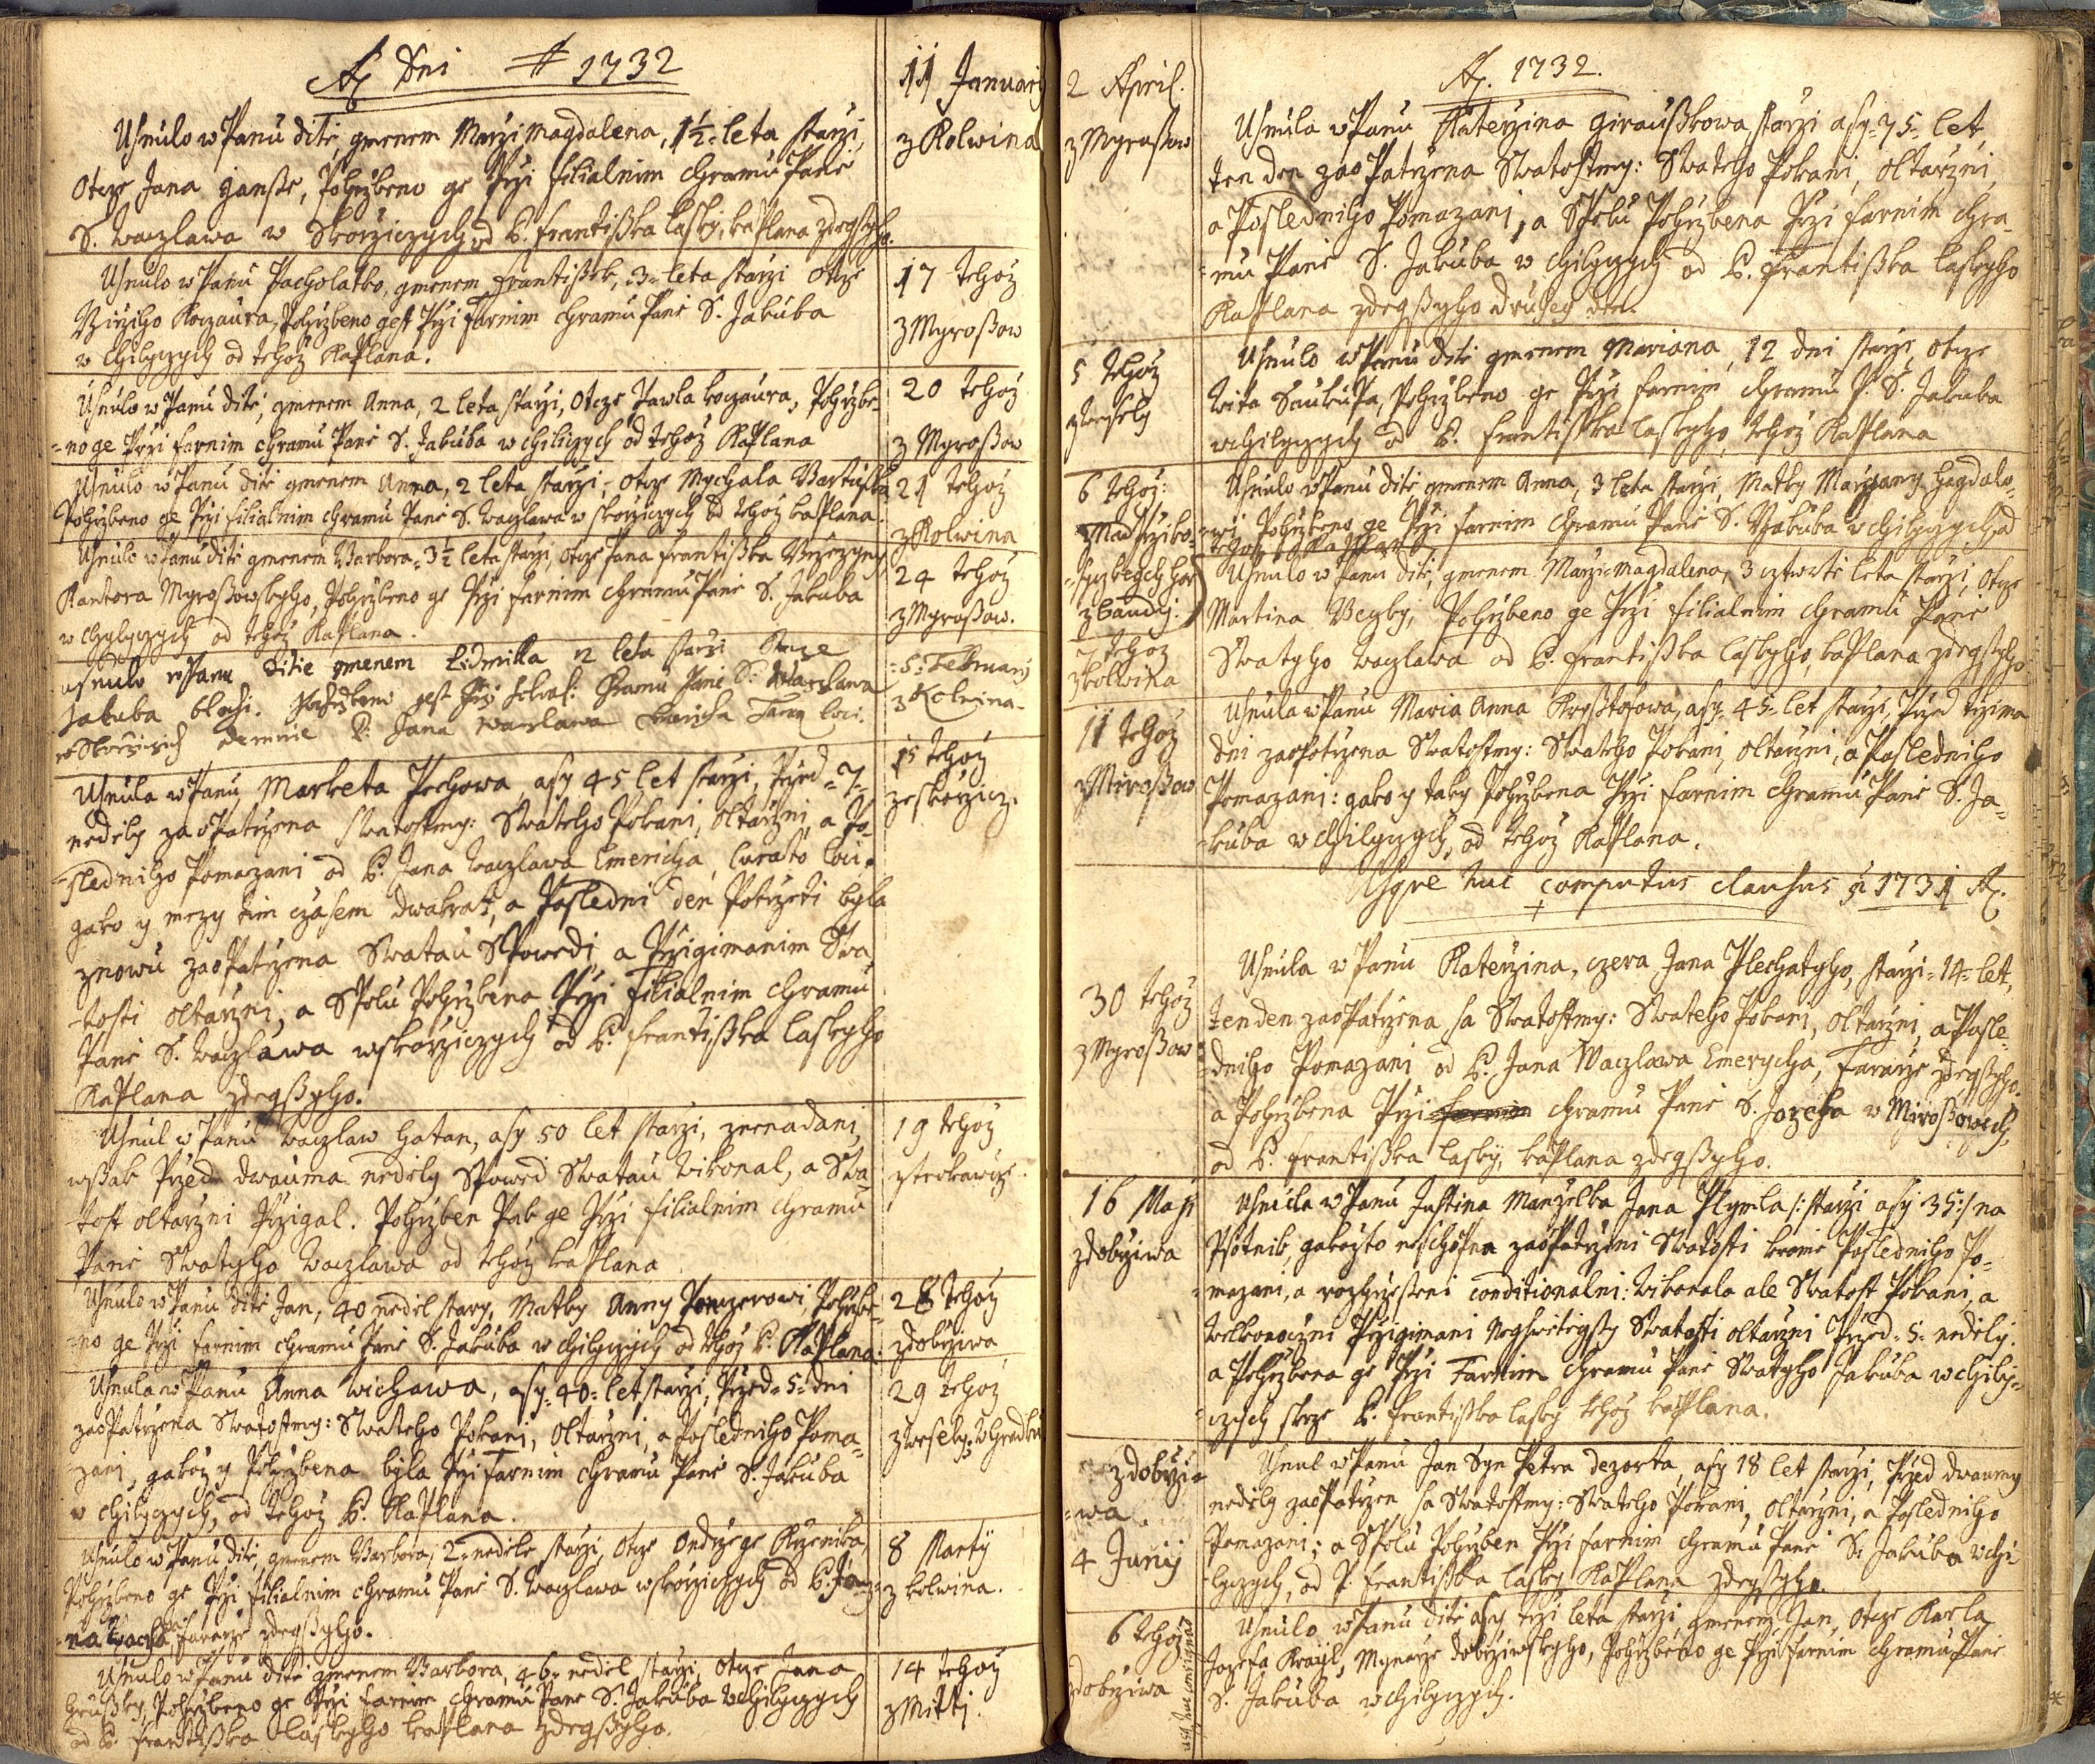 Aº Dni 1732
11 Januarij
z Kolwina
Usnulo w Panu Dite, gmenem Marzi Magdalena, 1½ leta starzi,
Otcze Jana Gansse, Pohrzbeno ge Przi filialnim Chramu Pane
S. Waczlawa w Skorziczych od P. Frantisska Lasky, kaplana zdegssyho.
17 tehoz
z Myrossow
Usnulo w Panu Pacholatko, gmenem Frantissek, 3 leta starzi Otcze
Girziho Koczaura, Pohrzbeno gest Przi Farnim Chramu Pane S. Jakuba
w Chilczych od tehoz Kaplana.
20 tehoz
z Myrossow
Usnulo w Panu Dite, gmenem Anna, 2 leta starzi, Otcze Pawla Koczaura, Pohrzbe-
=no ge Przi farnim Chramu Pane S. Jakuba w Chilczych od tehoz Kaplana
21 tehoz
z Kolwina
Usnulo w Panu Dite gmenem Anna, 2 leta starzi, Otcze Mychala Bartusska
Pohrzbeno ge Przi filialnim Chramu Pane S. Waczlawa w Skorziczych od tehoz kaplana.
24 tehoz
z Myrossow.
Usnulo w Panu Dite gmenem Barbora, 3½ leta starzi, Otcze Jana Frantisska
Kantora Myrossowskyho, Pohrzbeno ge Przi farnim Chramu Pane S. Jakuba
w Chylczych od tehoz Kaplana.
5: Februarij
z Kolwina
Usnulo w Panu Ditie gmenem Lidmilla 2 leta starzi Otcze
Jakuba Blahi. Pohrzbeno gest Przi filial: Chramu Pane S: Waclawa
w Skorzicich odemnie P: Jana Waclawa Emericha Farar loci.
15 tehoz
ze Skorzicz.
Usnula w Panu Marketa Pechowa, asy 45 let starzi, Przed =7=
nedely zaopatrzena Swatostmy: Swateho Pokani, Oltarzni, a Po-
=sledniho Pomazani od P. Jana Waczlawa Emericha, Curato loci.
gako y mezy tim czasem dwakrat, a Posledni den Potrzeti byla
znowu zaopatrzena Swatau Spowedi, a Przigimanim Swa-
=tosti Oltarzni, a Spolu Pohrzbena Przi Filialnim Chramu
Pane S. Waczlawa w Skorziczych od P. Frantisska Laskyho
Kaplana zdegssyho.
19 tehoz
z Strokawicz
Usnul w Panu Waczlaw Hatan, asy 50 let starzi, znenadani,
wssak Przed dwauma nedely Spowed Swatau Wikonal, a Swa-
=tost Oltarzni Przigal. Pohrzben Pak ge Przi filialnim Chramu
Pane Swatyho Waczlawa od tehoz kaplana
28 tehoz
z Dobrziwa
Usnulo w Panu Dite Jan, 40 nedel stary, Matky Anny, Pohrzbe-
=no ge Przi farnim Chramu Pane S. Jakuba w Chilczych od tehoz P. Kaplana.
29 tehoz
z Wesely: w Hradku
Usnula w Panu Anna Wichawa, asy =40= let starzi, Przed =5= dni
zaopatrzena Swatostmy: Swateho Pokani, Oltarzni, a Posledniho Poma-
=zani, gakoz y Pohrzbena byla Przi Farnim Chramu Pane S. Jakuba
w Chilczych, od tehoz P. Kaplana.
8 Martij
z Kolwina.
Usnulo w Panu Dite, gmenem Barbora, 2 nedele starzi, Otcze Ondrzege
Pohrzbeno ge Przi filialnim Chramu Pane S. Waczlawa w Skorziczych od P. Ja-
=na Wacla: Fararze zdegssyho.
14 tehoz
z Mitti.
Usnulo w Panu Dite gmenem Barbora, 46 nedel starzi, Otcze Jana
Hrussky, Pohrzbeno ge Przi farnim Chramu Pane S. Jakuba w Chilczych
od P. Frantisska Laskyho kaplana zdegssyho.
Aº. 1732.
2 April.
z Myrossow
Usnula w Panu Katerzina Girausskowa starzi asy =75= let,
ten den zaopatrzena Swatostmy: Swateho Pokani, Oltarzni,
a Posledniho Pomazani, a Spolu Pohrzbena Przi farnim Chra-
=mu Pane S. Jakuba w Chilczych od P. Frantisska Laskyho
Kaplana zdegssyho druhey den.
5 tehoz
z Wesely
Usnulo w Panu Dite gmenem Mariana, 12 dni starzi, Otcze
Wita Saukupa, Pohrzbeno ge Przi farnim Chramu P. S. Jakuba
w Chilczych od P. Frantisska Laskyho, tehoz Kaplana
6 tehoz:
Usnulo w Panu Dite gmenem Anna, 3 leta starzi, Matky Marzyany Hagdalo-
=wi Pohrzbeno ge Przi farnim Chramu Pane S. Jakuba w Chilczych, od
tehoz Kaplana
7 tehoz
z Kolwina
Usnulo w Panu Dite, gmenem Marzi Magdalena, 3 cztwrte leta starzi, Otcze
Martina, Pohrzbeno ge Przi filialnim Chramu Pane
Swatyho Waczlawa od P. Frantisska Laskyho, kaplana zdegssyho
11 tehoz
z Mirossow
Usnula w Panu Maria Anna Krysstofowa, asy 45 let starzi, Przed trzima
dni zaopatrzena Swatostmy: Swateho Pokani, Oltarzni, a Posledniho
Pomazani: gako y taky Pohrzbena Przi farnim Chramu Pane S. Ja-
=kuba w Chilczych, od tehoz Kaplana.
Usque huc computus clausus pro 1731 Aº.
30 tehoz
z Myrossow
Usnula w Panu Katerzina, czera Jana Plechatyho, starzi =14= let,
ten den zaopatrzena sa Swatostmy: Swateho Pokani, Oltarzni, a Posle-
=dniho Pomazani od P. Jana Waczlawa Emerycha, Fararze zdegssyho.
a Pohrzbena Przi farnim Chramu Pane S. Jozefa w Mirossowech,
od P. Frantisska Lasky, kaplana zdegssyho.
16 Maji
z Dobrziwa
Usnula w Panu Justina Manzelka Jana Plymla /: starzi asy 35 :/ na
Psotnik, gakozto neschopna zaopatrzeni Swatosti krome Posledniho Po-
=mazani, a rozhrzesseni conditionalni: Wikonala ale Swatost Pokani, a
Welkonoczni Przigimani Neyswetegssy Swatosti Oltarzni Przed =5= nedely:
a Pohrzbena ge Przi Farnim Chramu Pane Swatyho Jakuba w Chili-
=czych skrze P. Frantisska Lasky tehoz kaplana.
z Dobrzi=
=wa
4 Junij
Usnul w Panu Jan Syn Petra Dezorta, asy 18 let starzi, Przed dwaumy
nedely zaopatrzen sa Swatostmy: Swateho Pokani, Oltarzni, a Posledniho
Pomazani; a Spolu Pohrzben Przi farnim Chramu Pane S. Jakuba w Chi-
lczych, od P. Frantisska Lasky Kaplana zdegssyho.
6 tehoz
z Dobrziwa
Usnulo w Panu Dite asy trzi leta starzi, gmenem Jan, Otcze Karla
Jozefa Kraryl, Mynarze Dobrziwskyho, Pohrzbeno ge Przi farnim Chramu Pane
S. Jakuba w Chilczych.
usq huc consignat